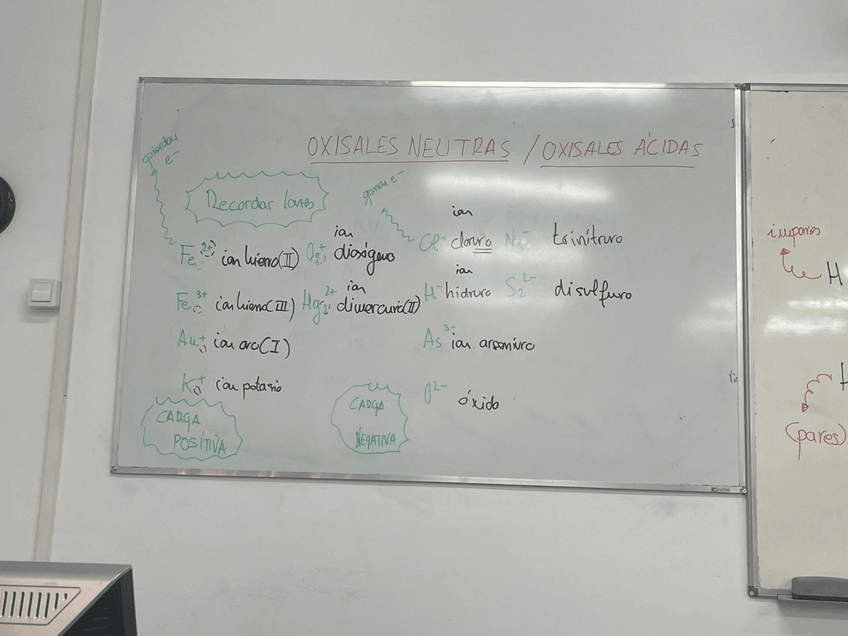 OXISALES NEUTRAS / OXISALES ÁCIDAS
pierden e-
Recordar Iones
ganan e-
Fe2+ ion hierro(II) O2+ ion dioxígeno Cl- ion cloruro trinitruro
Fe3+ ion hierro(III) Hg2 2+ ion dimercurio(II) H- ion hidruro S2 2- disulfuro
Au+ ion oro(I) As3- ion arseniuro
K+ ion potasio O2- óxido
CARGA POSITIVA
CARGA NEGATIVA
impares
H
H
(pares)